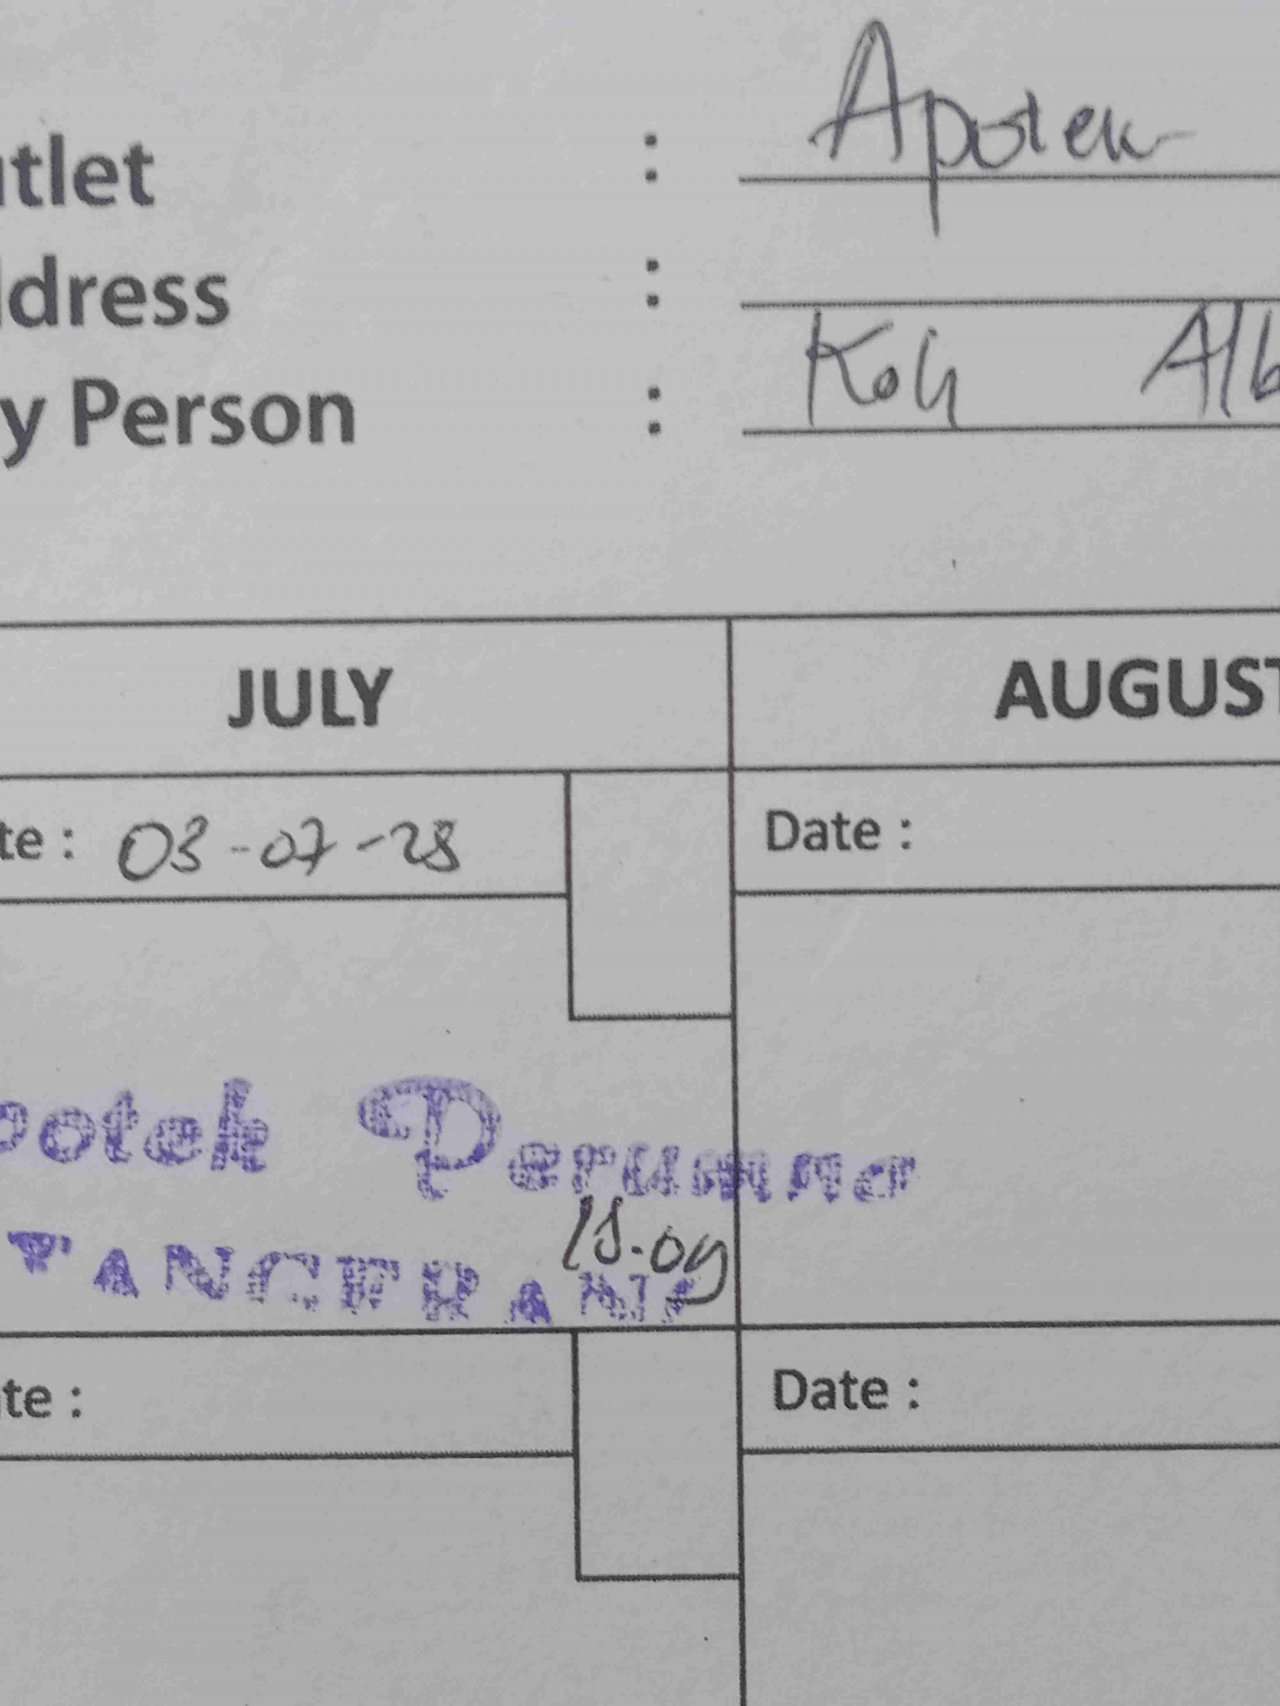 utlet : Apotek
ddress :
y Person : Koh Alb
JULY AUGUST
te : 03-07-28 Date :
potek Perumna
TANGERANG
15.09
te : Date :